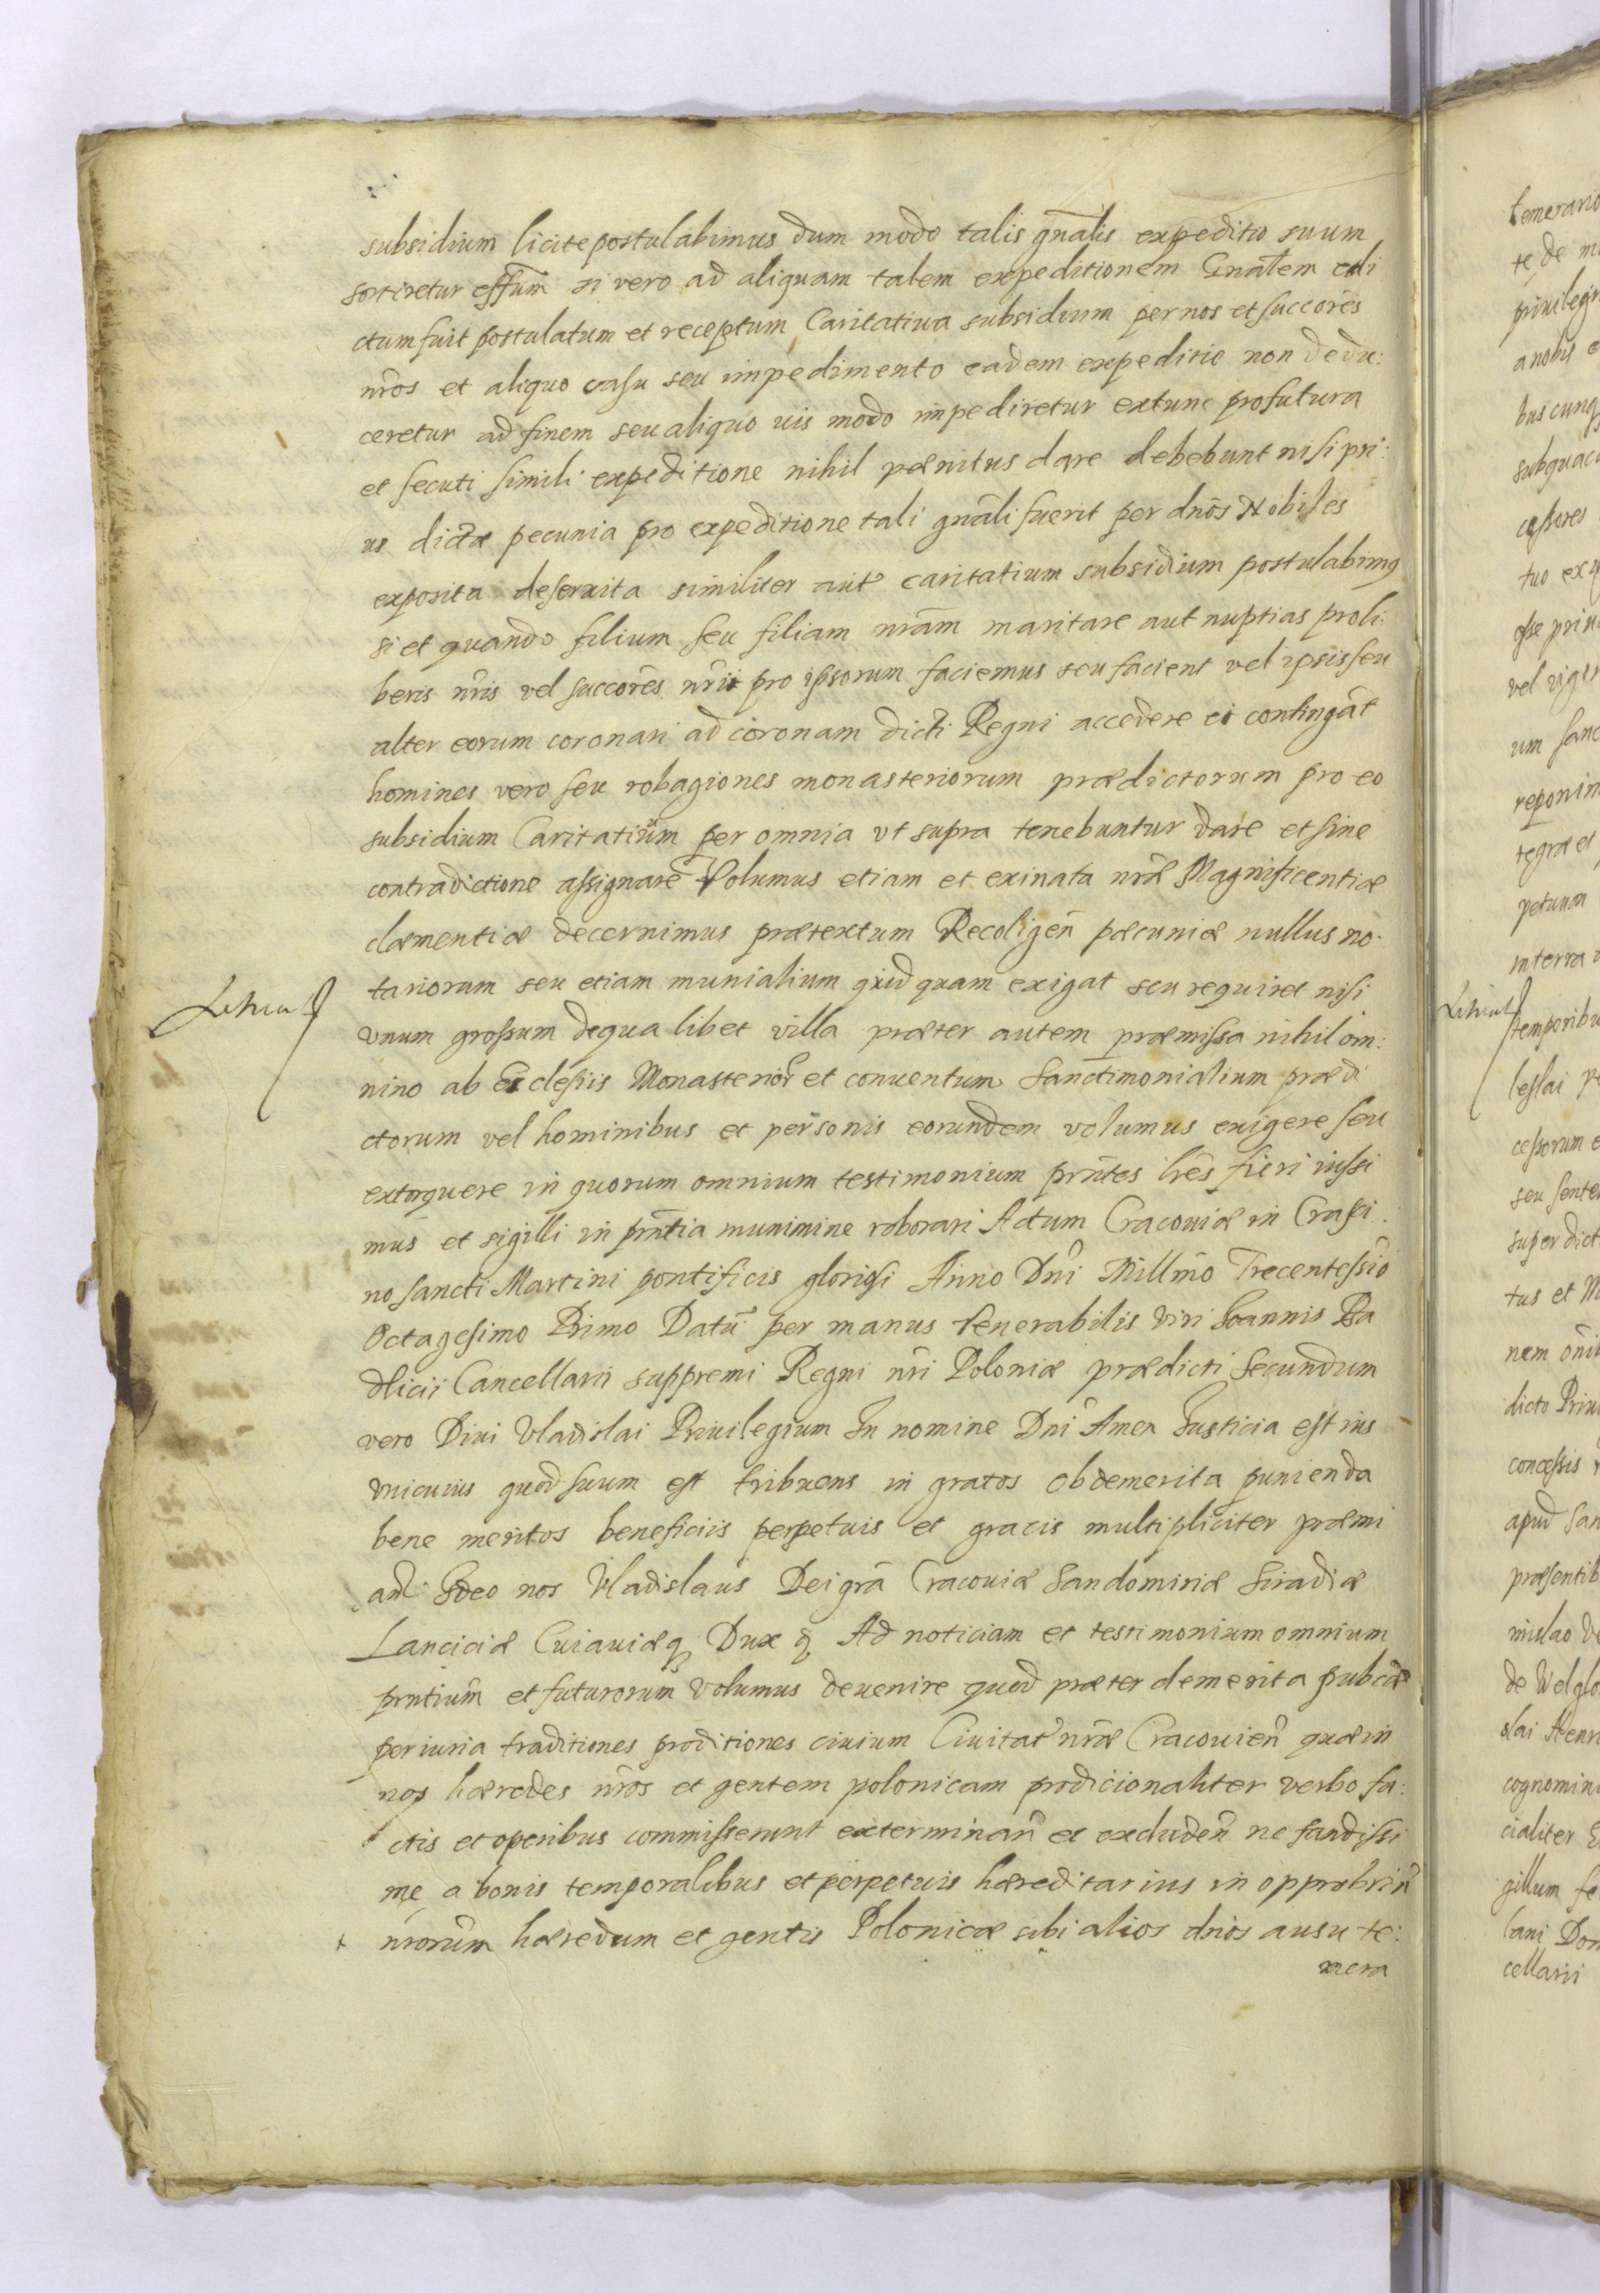 subsidium licite postulabimus dum modo talis gnalis expeditio suum
sortiretur effum si vero ad aliquam talem expeditionem Gnalem edi
ctum fuit postulatum et receptum Caritatiua subsidium per nos et succores
nros et aliquo casu seu impedimento eadem expeditie non dedu:
ceretur ad finem seu aliquo uis modo impediretur extunc profutura
et secuti simili expeditione nihil pænitus dare debebunt nisi pri:
us dictæ pecunia pro expeditione tali gnali fuerit per dnos Nobiles
exposita deseruita similiter aut caritatium subsidium postulabimus
si et quando filium seu filiam nram maritare aut nuptias pro li:
beris nris vel succores nrii pro ipsorum faciemus seu facient vel ipsis seu
alter eorum coronari ad coronam dicti Regni accedere ei contingat
homines vero seu robagiones monasteriorum prædictorum pro eo
subsidium Caritatium per omnia vt supra tenebuntur dare et sine
contradictione assignare Volumus etiam et exinata nræ Magnificentiæ
clæmentiæ decernimus prætextum Recoligen pæcuniæ nullus no-
tariorum seu etiam munialium quid quam exigat seu requiret nisi
Vnum grossum de qua libet villa præter autem præmissa nihil om:
nino ab Ecclesiis Monasterior et conuentum Sanctimonialium prædi
ctorum vel hominibus et personis eorundem volumus exigere seu
extorquere in quorum omnium testimonium prntes lres fieri iussi
mus et sigilli in prntia munimine roborari Actum Cracouiæ in Crasti
no sancti Martini pontificis gloriosi Anno Dni Millmo Trecentessio
Octagesimo Primo Datum per manus Venerabilis viri Ioannis Ra
dlicii Cancellarii suppremi Regni nri Poloniæ prædicti Secundum
vero Diui Vladislai Priuilegium In nomine Dni Amen Iusticia est ius
vnicuius quod suum est tribuens in gratos ob demerita punienda
bene meritos beneficiis perpetuis et gracis multipliciter præmi
and Ideo nos Vladislaus Dei gra Cracouiæ Sandomiriæ Siradiæ
Lanciciæ Cuiauiæq Dux q Ad noticiam et testimonium omnium
prntium et futurorum Volumus deuenire quod præter demerita publicæ
periuria traditiones proditiones ciuium Ciuitat nræ Cracouien quæ in
nos hæredes nros et gentem polonicam prodicionaliter verbo fa:
ctis et operibus commisserunt exterminan et excluden nefandissi
me a bonis temporalibus et perpetuis hæreditarius in opprobrium
nrorum hæredum et gentis Polonicæ sibi alios dnos ausu te:
mera